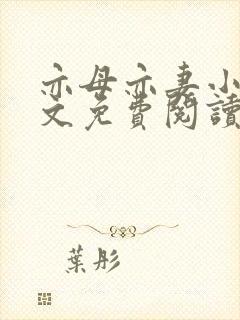 亦母亦妻小
文免費閱讀
葉彤